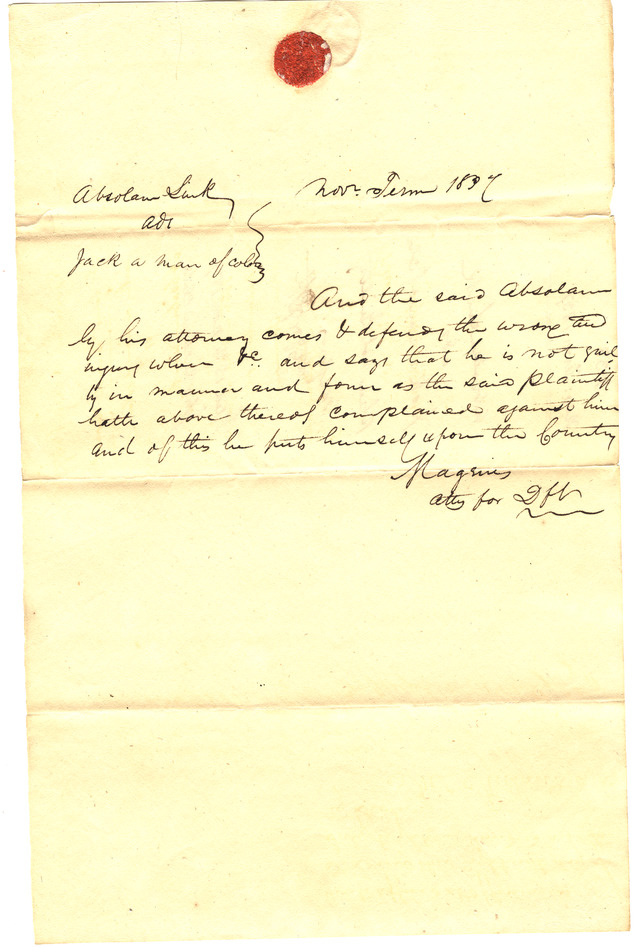 Absolam Link
Nov. Term 1837
ads
Jack a man of color
And the said Absolam
by his attorney comes & defends the wrong and
injury when &c. and says that he is not guil
ty in manner and form as the said plaintiff
hath above thereof complained against him
and of this he puts himself upon the Country
Magenis
atty for Dft